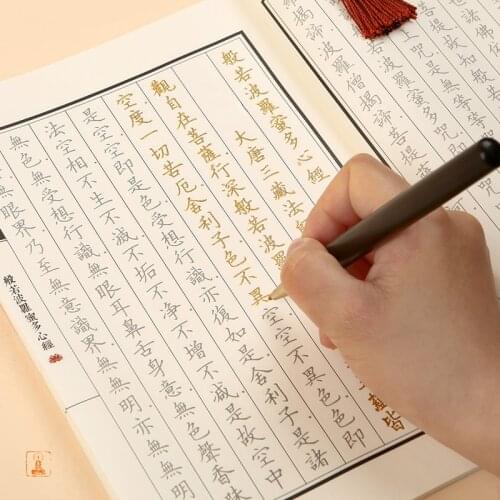 上咒是無等等
揭諦波羅僧揭諦菩
般若波羅蜜多心經
大唐三藏法
觀自在菩薩行深般若波羅
蘊皆
空度一切苦厄舍利子色不異空空不異色色即
是空空即是色受想行識亦復如是舍利子是諸
法空相不生不滅不垢不淨不增不減是故空中
無色無受想行識無眼耳鼻舌身意無色聲香味
無眼界乃至無意識界無無明亦無無明
般若波羅蜜多心經